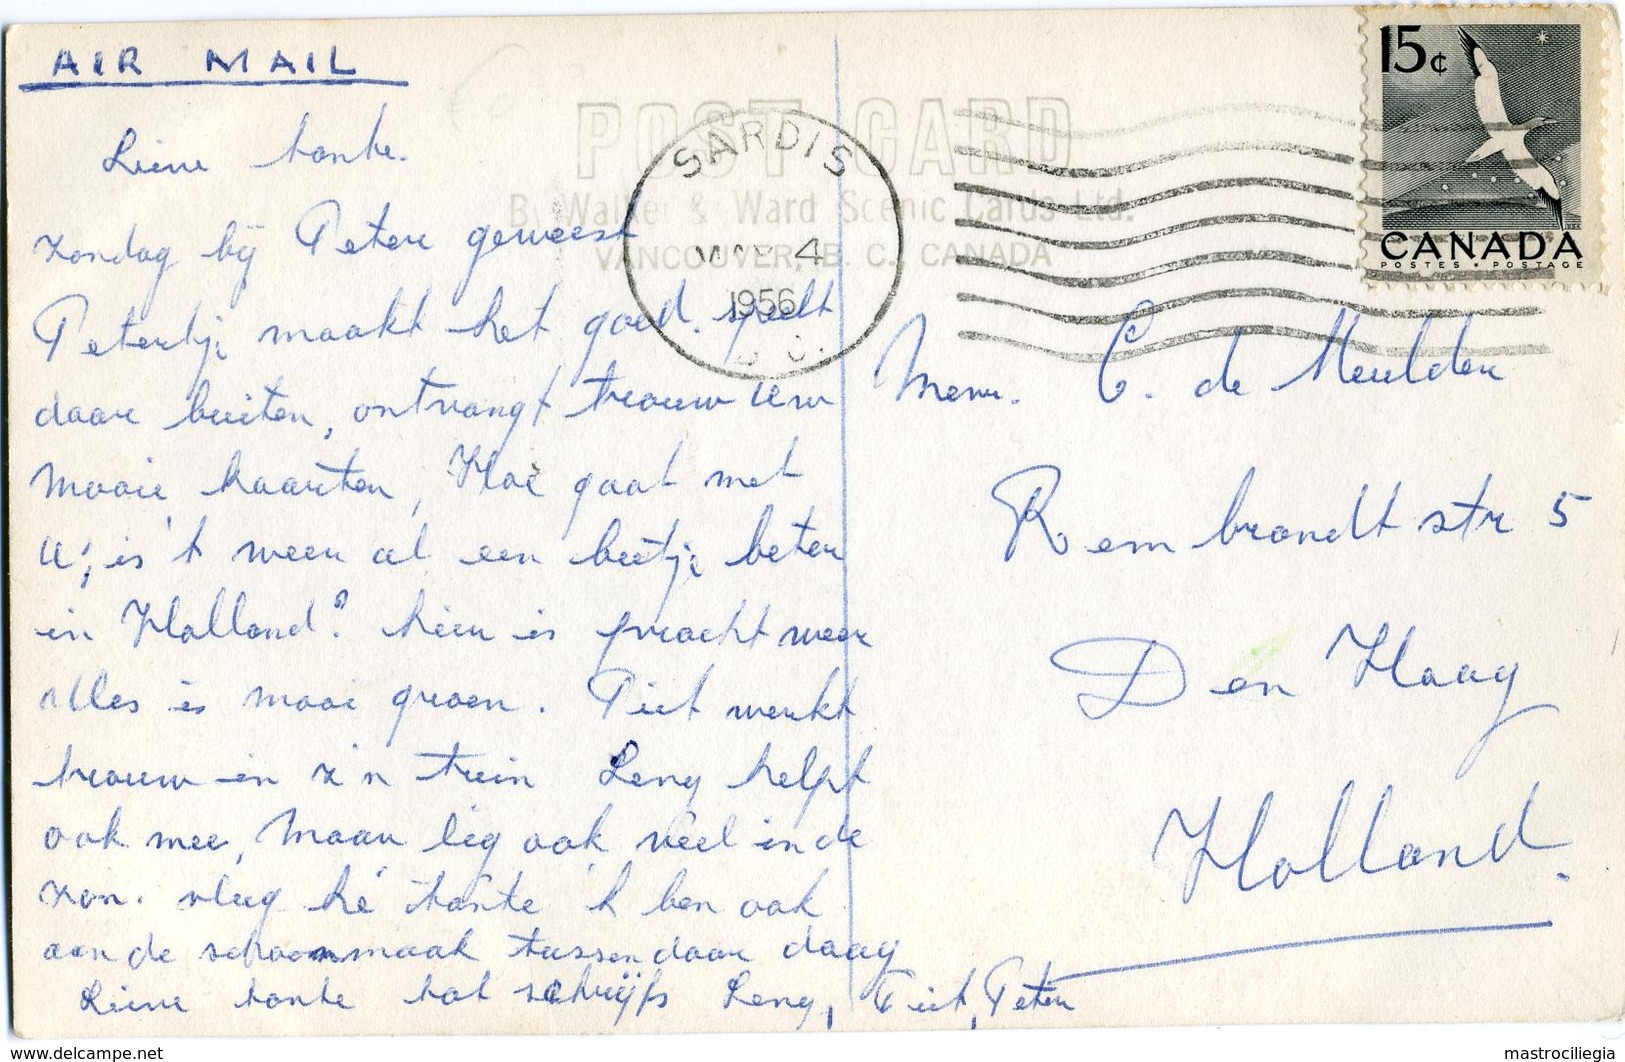 AIR MAIL
Lieve tante.
zondag bij Peter geweest
Petertje maakt het goed. speelt
daar buiten, ontvangt trouw Uw
mooie kaarten, Hoe gaat met
U, is 't weer al een beetje beter
in Holland? hier is pracht weer
alles is mooi groen. Piet werkt
trouw in z'n tuin Leny helpt
ook mee, maar lig ook veel in de
zon. vleug hé tante 'k ben ook
aan de schoonmaak tussendoor daag
Lieve tante tot schrijfs Leny, Piet, Peter
POST CARD
By Walker & Ward Scenic Cards Ltd.
VANCOUVER, B. C., CANADA
SARDIS
4
1956
15¢
CANADA
POSTES • POSTAGE
Mevr. C. de Meulder
Rembrandt str 5
Den Haag
Holland.
www.delcampe.net
mastrociliegia